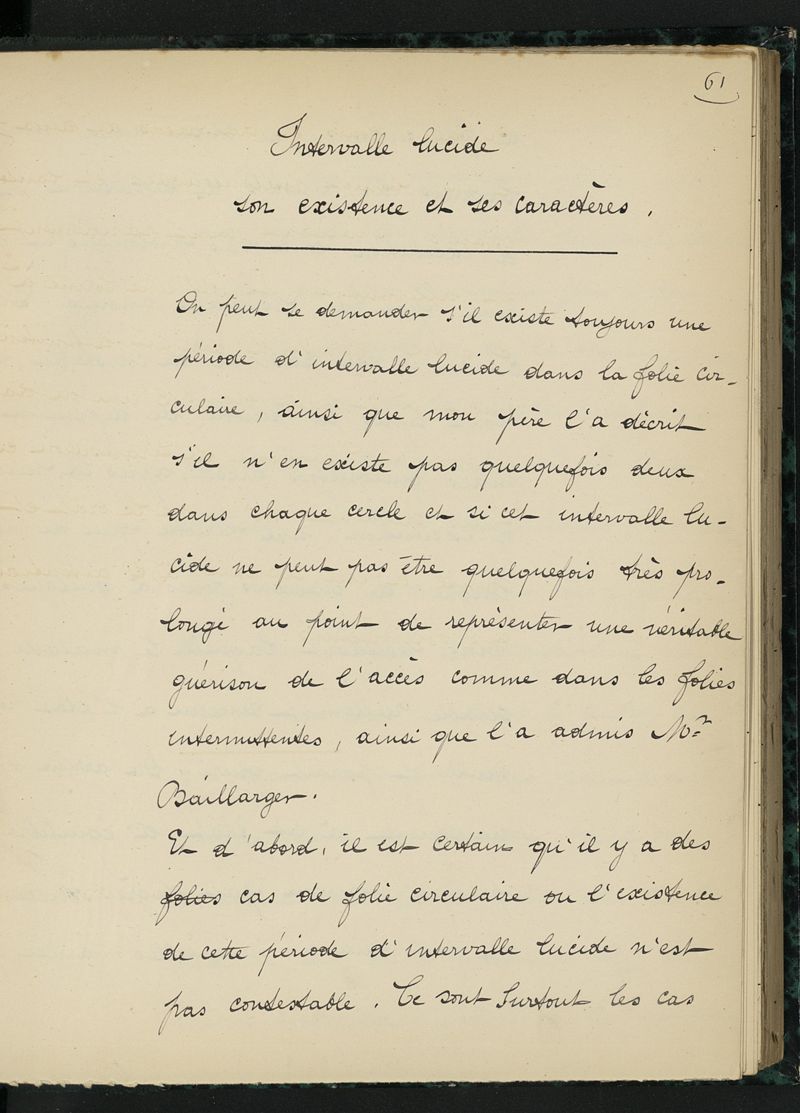 61
Intervalle lucide
son existence et ses caractères.
On peut se demander s'il existe toujours une
période d'intervalle lucide dans la folie cir-
culaire, ainsi que mon père l'a décrit
s'il n'en existe pas quelquefois deux
dans chaque cercle et si cet intervalle lu-
cide ne peut pas être quelquefois très pro-
longé au point de représenter une véritable
guérison de l'accès comme dans les folies
intermittentes, ainsi que l'a admis Mr
Baillarger.
Et d'abord, il est certain qu'il y a des
folies cas de folie circulaire ou l'existence
de cette période d'intervalle lucide n'est
pas contestable. Ce sont surtout les cas